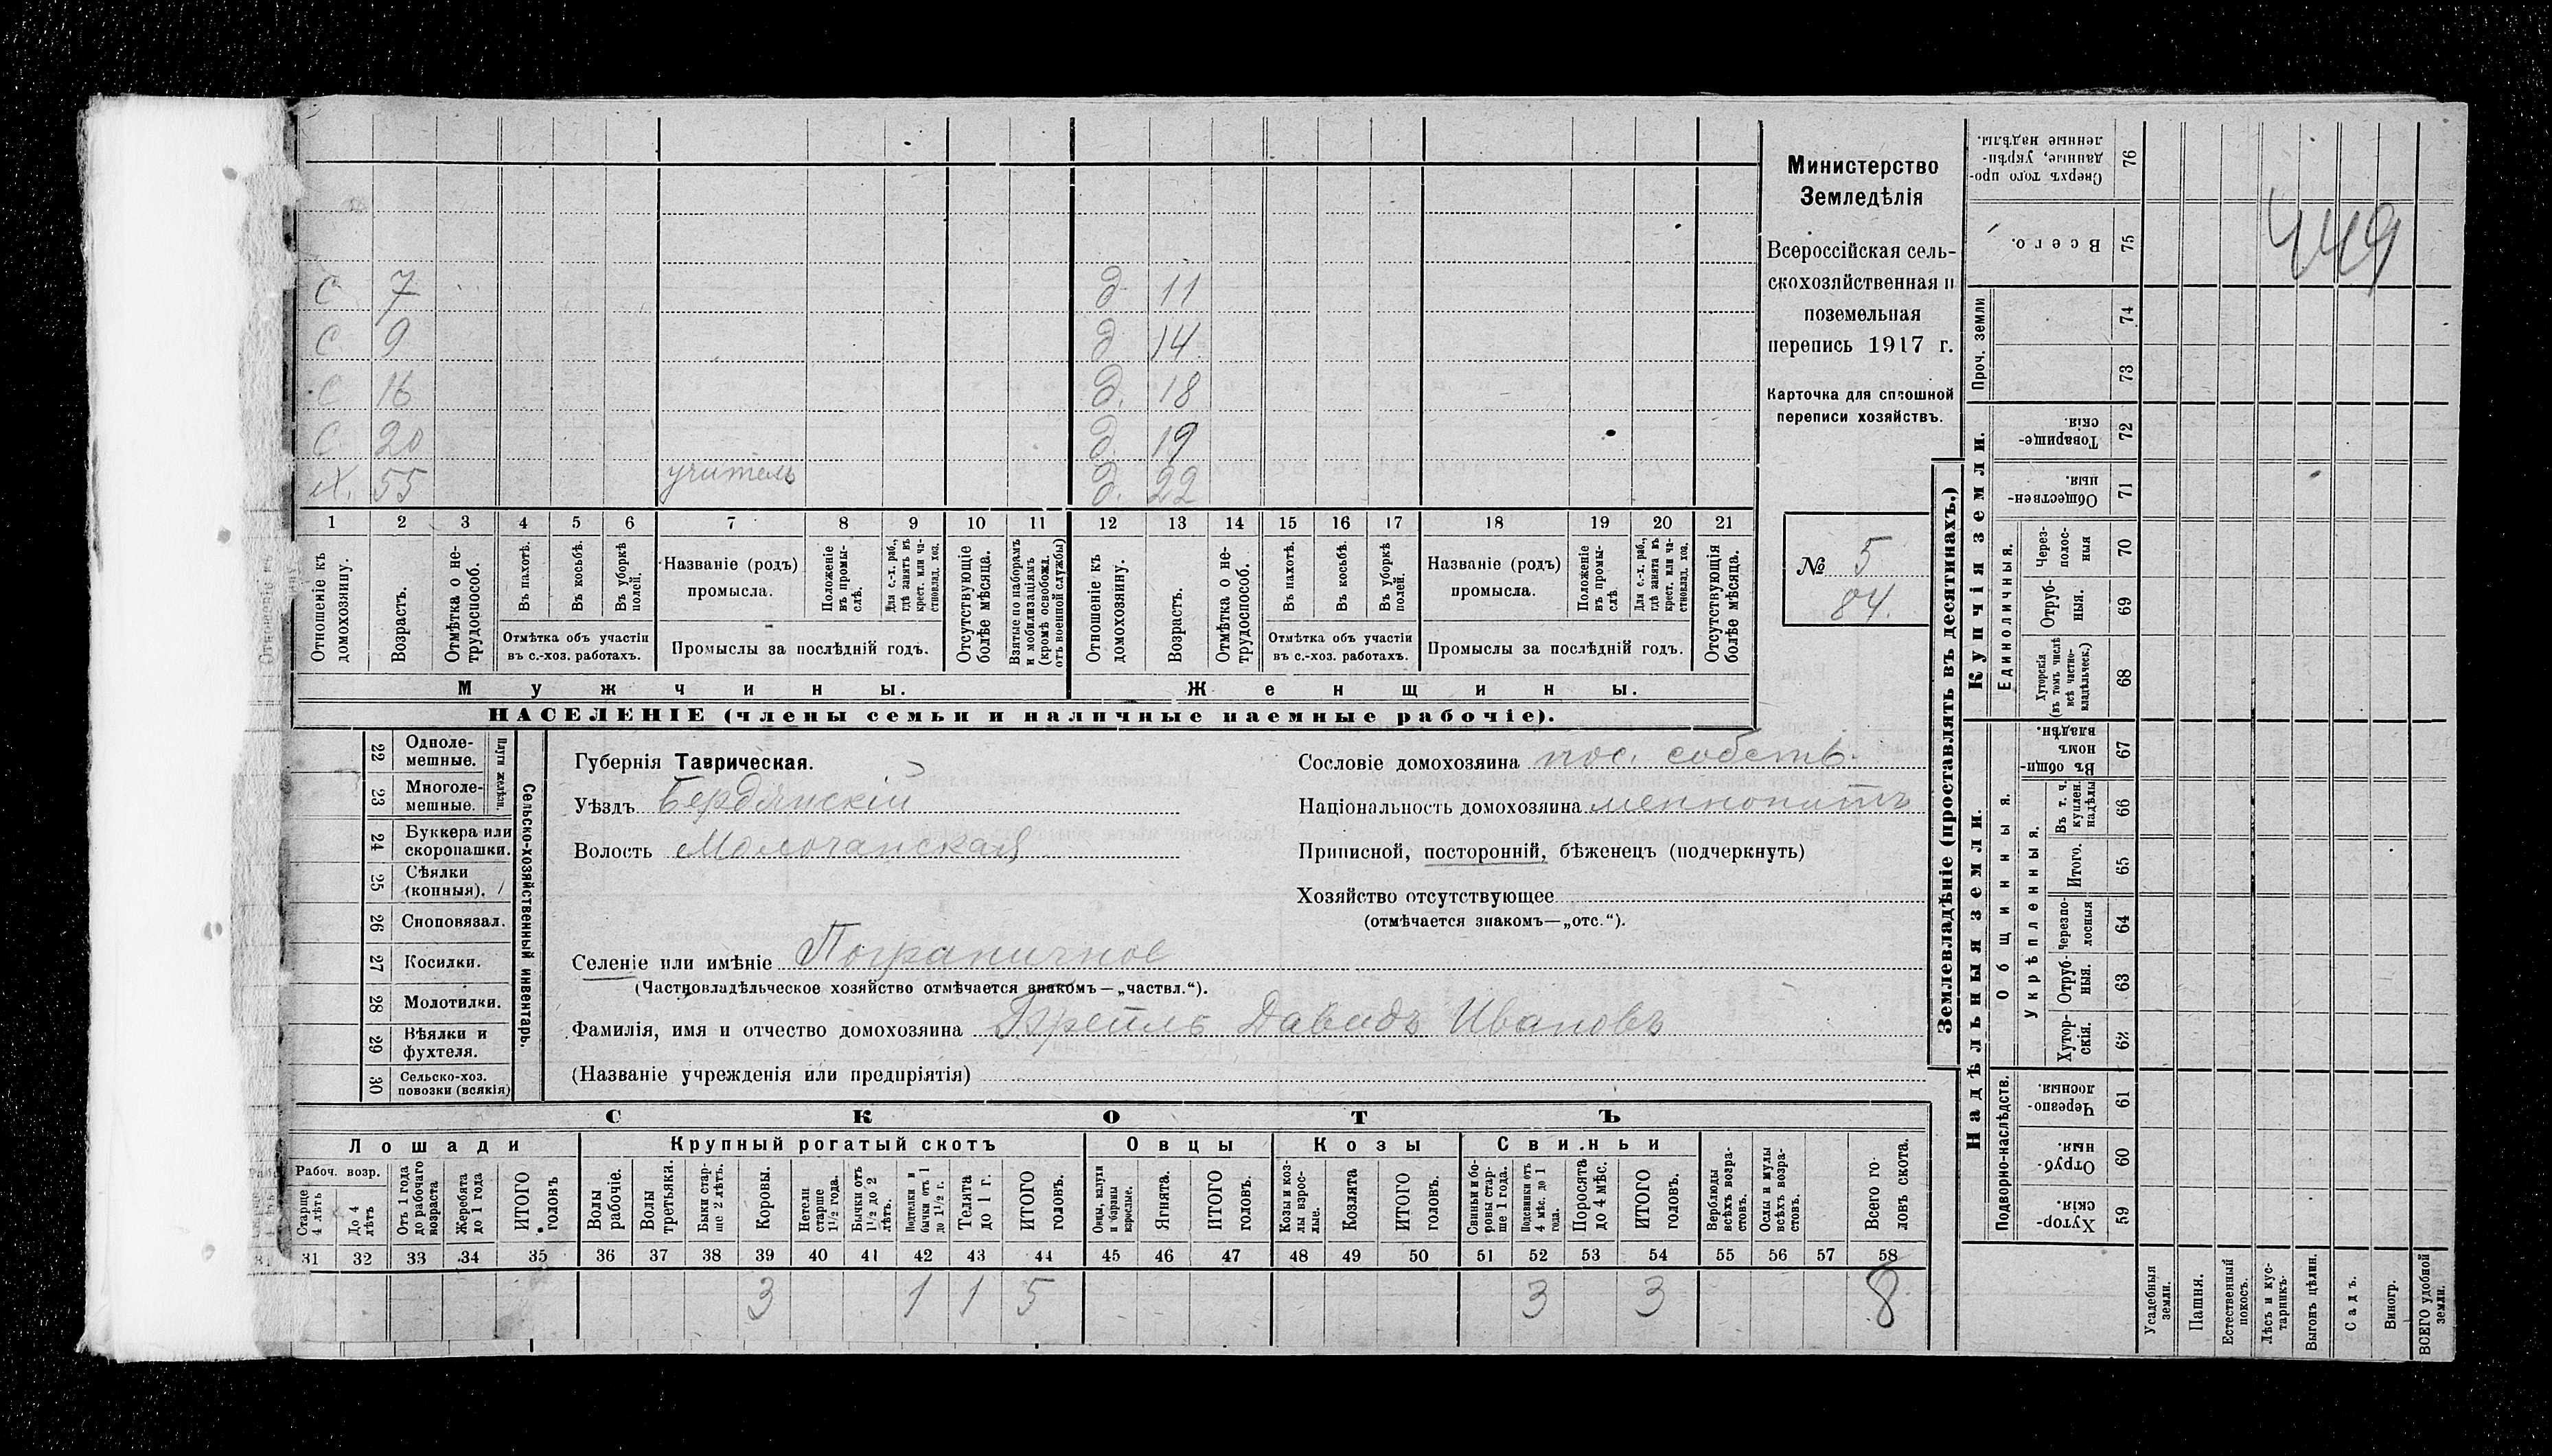 Министерство
Земледѣлія
Всероссійская сель-
скохозяйственная и
поземельная
перепись 1917 г.
Карточка для сплошной
переписи хозяйствъ.
№ 5
84.
449
С 7 д. 11
С 9 д 14
С 16 д. 18
С 20 д. 19
Х. 55 учитель д. 22
1 2 3 4 5 6 7 8 9 10 11 12 13 14 15 16 17 18 19 20 21
Отношеніе къ домохозяину.
Возрастъ.
Отмѣтка о не-трудоспособ.
Въ пахотѣ.
Въ косьбѣ.
Въ уборкѣ полей.
Отмѣтка объ участіи
въ с.-хоз. работахъ.
Названіе (родъ)
промысла.
Положеніе въ промы-слѣ.
Для с.-х. раб., гдѣ занятъ въ крест. или ча-стновлад. хоз.
Промыслы за послѣдній годъ.
Отсутствующіе болѣе мѣсяца.
Взятые по наборамъ и мобилизаціямъ (кромѣ освобожд. отъ военной службы)
Отношеніе къ домохозяину.
Возрастъ.
Отмѣтка о не-трудоспособ.
Въ пахотѣ.
Въ косьбѣ.
Въ уборкѣ полей.
Отмѣтка объ участіи
въ с.-хоз. работахъ.
Названіе (родъ)
промысла.
Положеніе въ промы-слѣ
Для с.-х. раб., гдѣ занята въ крест. или ча-стновлад. хоз.
Промыслы за послѣдній годъ.
Отсутствующія болѣе мѣсяца.
Мужчины.
Женщины.
НАСЕЛЕНІЕ (члены семьи и наличные наемные рабочіе).
22 Одноле-мешные.
23 Многоле-мешные.
Плуги желѣзн.
24 Буккера или скоропашки.
25 Сѣялки (конныя). /
26 Сноповязал.
27 Косилки.
28 Молотилки.
29 Вѣялки и фухтеля.
30 Сельско-хоз. повозки (всякія)
Сельско-хозяйственный инвентарь.
Губернія Таврическая.
Уѣздъ Бердянскій
Волость Молочанская
Селеніе или имѣніе Пограничное
(Частновладѣльческое хозяйство отмѣчается знакомъ—„частвл.“).
Фамилія, имя и отчество домохозяина Брейль Давидъ Ивановъ
(Названіе учрежденія или предпріятія)
Сословіе домохозяина пос. собств.
Національность домохозяина меннонитъ
Приписной, посторонній, бѣженецъ (подчеркнуть)
Хозяйство отсутствующее
(отмѣчается знакомъ—„отс.“).
СКОТЪ
Лошади
Крупный рогатый скотъ
Овцы
Козы
Свиньи
Рабоч. возр.
Старше 4 лѣтъ
До 4 лѣтъ
Отъ 1 года до рабочаго возраста
Жеребята до 1 года
ИТОГО головъ
Волы рабочіе.
Волы третьяки.
Быки стар-ше 2 лѣтъ.
Коровы.
Нетели старше 1½ года.
Бычки отъ 1½ до 2 лѣтъ.
Подтелки и бычки отъ 1 до 1½ г.
Телята до 1 г.
ИТОГО головъ.
Овцы, валухи и бараны взрослые.
Ягнята.
ИТОГО головъ.
Козы и коз-лы взрос-лые.
Козлята
ИТОГО головъ.
Свиньи и бо-ровы стар-ше 1 года.
Подсвинки отъ 4 мѣс. до 1 года.
Поросята до 4 мѣс.
ИТОГО головъ.
Верблюды всѣхъ возра-стовъ.
Ослы и мулы всѣхъ возра-стовъ.
Всего го-ловъ скота.
31 32 33 34 35 36 37 38 39 40 41 42 43 44 45 46 47 48 49 50 51 52 53 54 55 56 57 58
3 1 1 5 3 3 8
Землевладѣніе (проставлять въ десятинахъ.)
Купчія земли.
Надѣльныя земли.
Сверхъ того про-данные, укрѣп-ленные надѣлы. 76
Всего. 75
Проч. земли
74
73
Товарище-скія. 72
Обществен-ныя. 71
Единоличныя.
Через-полос-ныя 70
Отруб-ныя. 69
Хуторскія (въ томъ числѣ всѣ частно-владѣльческ.) 68
Общинныя.
Въ общин-номъ владѣн. 67
Укрѣпленныя.
Въ т. ч. куплен. надѣлы 66
Итого. 65
Черезпо-лосныя 64
Отруб-ныя. 63
Хутор-скія. 62
Подворно-наслѣдств.
Черезпо-лосныя. 61
Отруб-ныя. 60
Хутор-скія. 59
Усадебныя земли.
Пашня.
Естественный покосъ.
Лѣсъ и кус-тарникъ.
Выгонъ цѣлин.
Садъ.
Виногр.
ВСЕГО удобной земли.